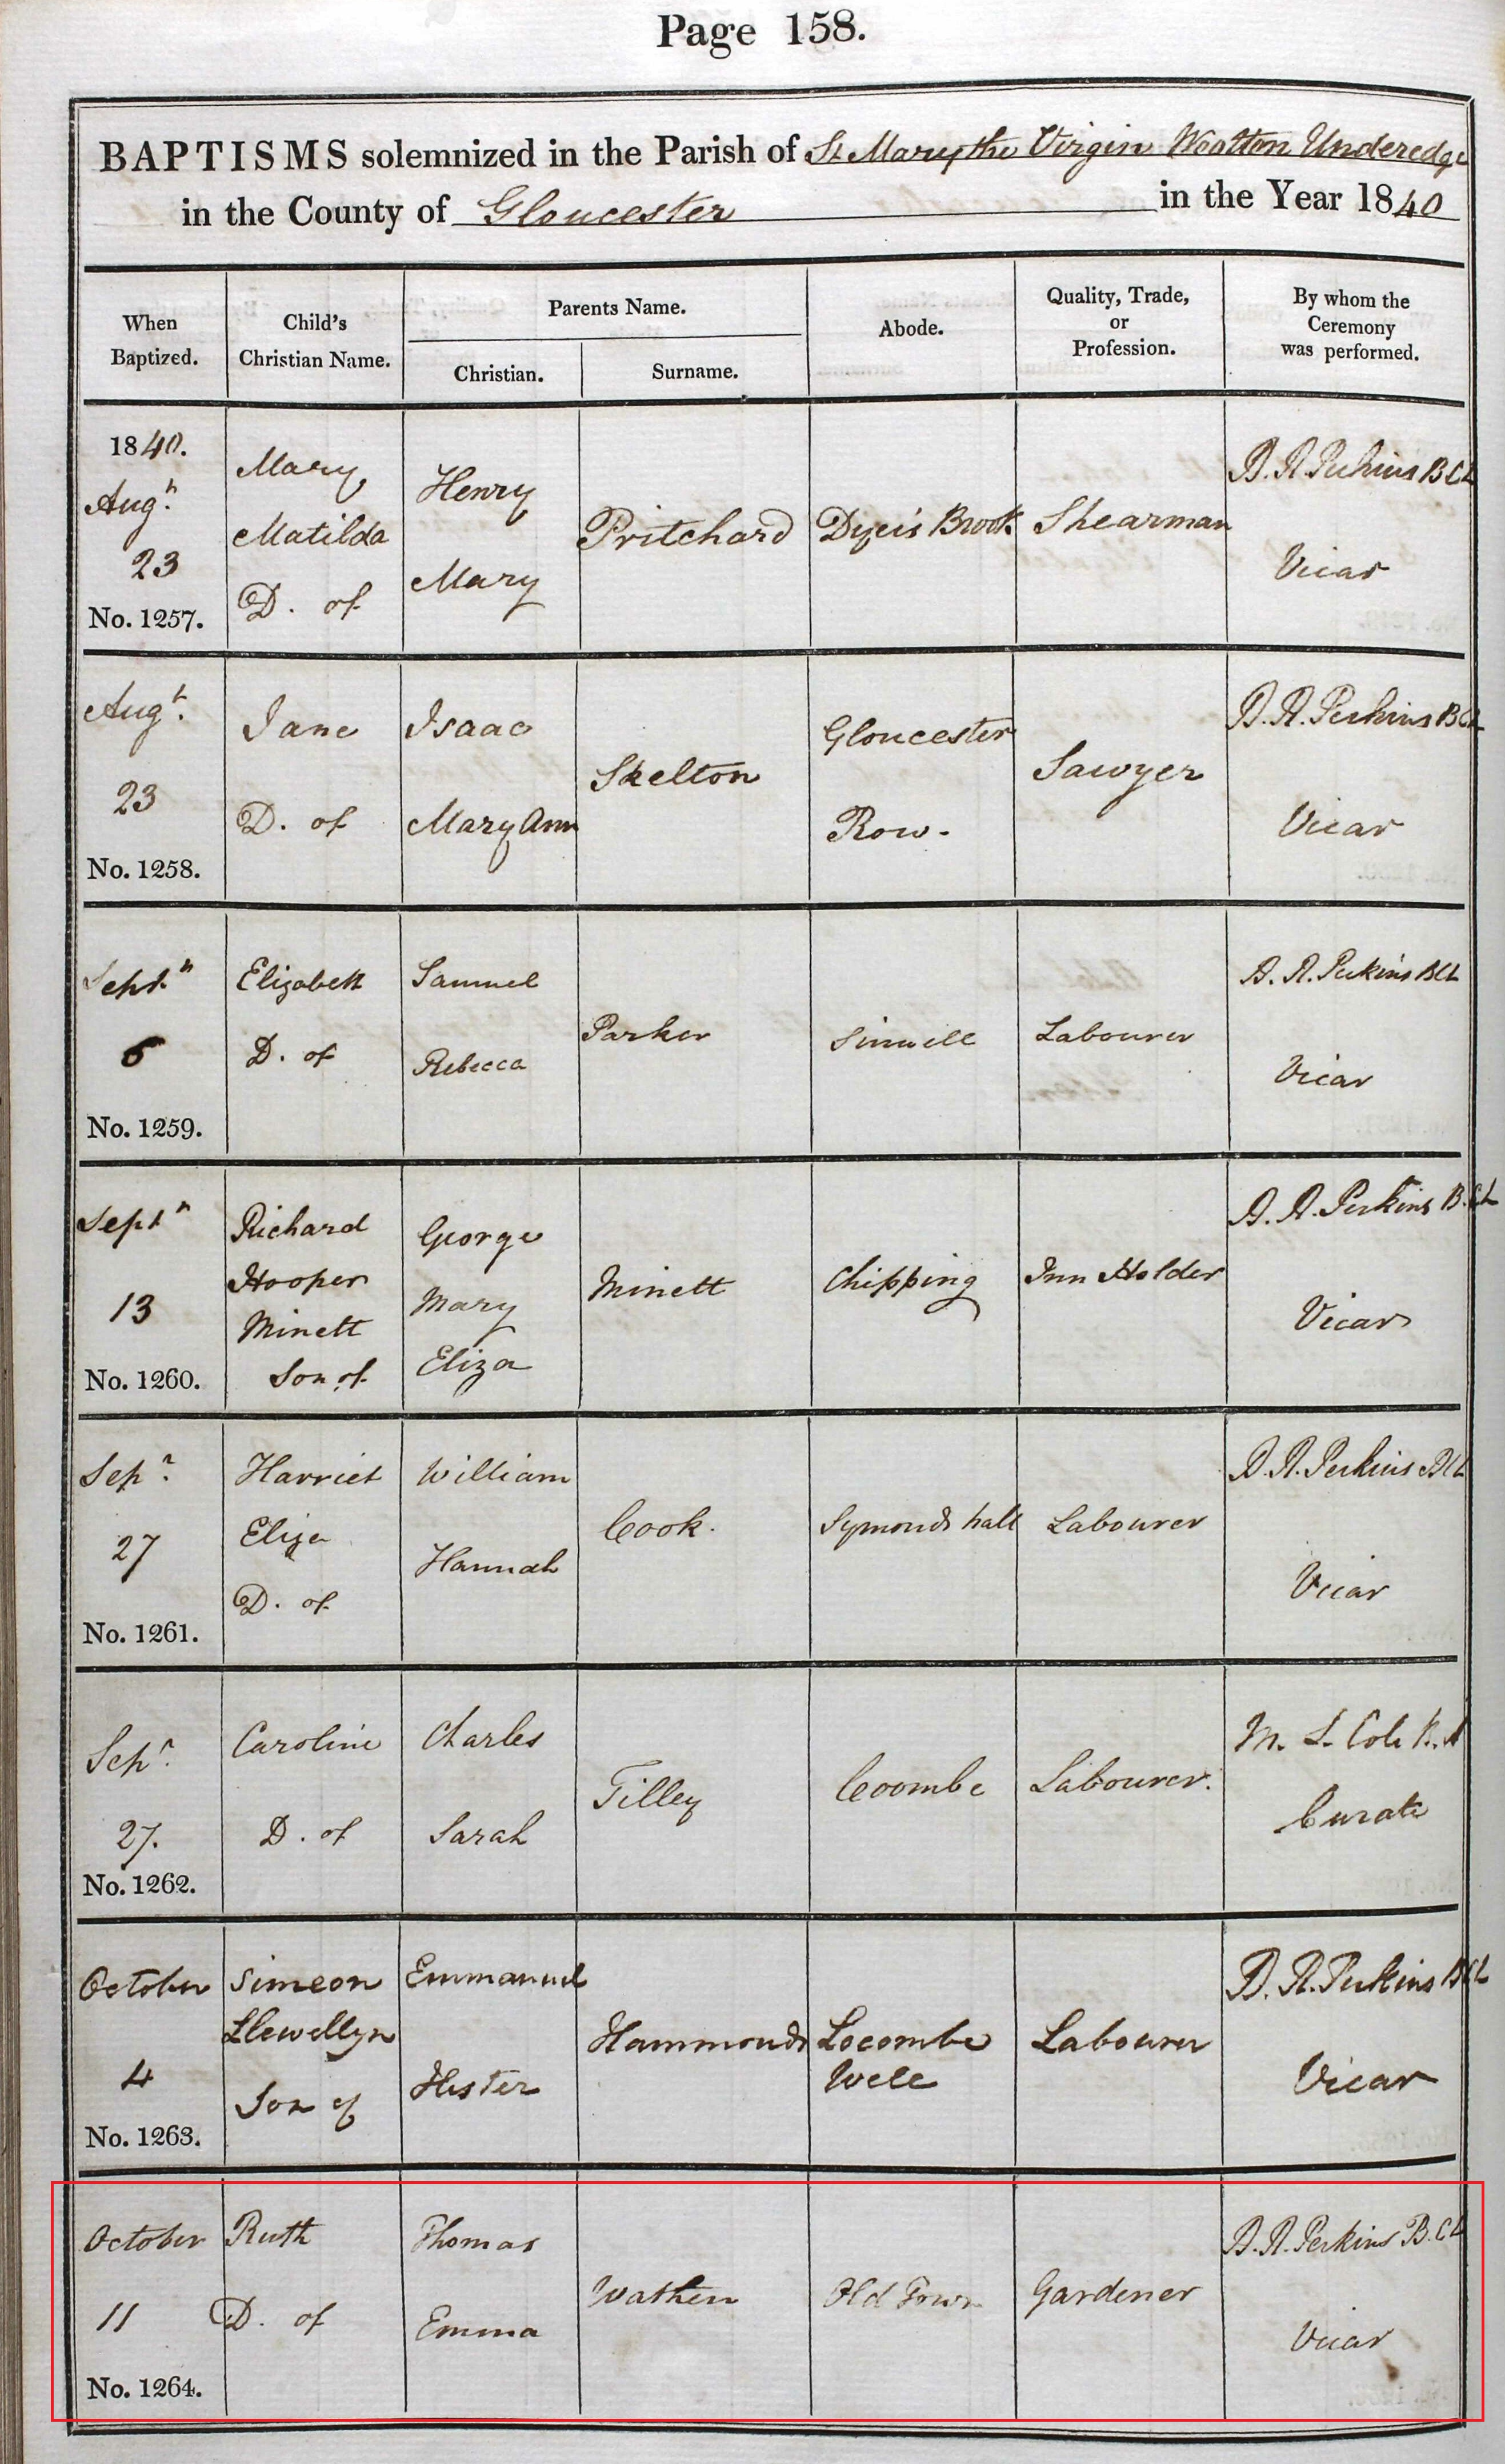 Page 158.
BAPTISMS solemnized in the Parish of St Mary the Virgin Wootton Underedge
in the County of Gloucester in the Year 1840
When Baptized.
Child's Christian Name.
Parents Name.
Christian.
Surname.
Abode.
Quality, Trade, or Profession.
By whom the Ceremony was performed.
1840.
Augt.
23
No. 1257.
Mary
Matilda
D. of
Henry
Mary
Pritchard
Dyer's Brook
Shearman
B. R. Perkins BCL
Vicar
Augt.
23
No. 1258.
Jane
D. of
Isaac
Mary Ann
Skelton
Gloucester
Row.
Sawyer
B. R. Perkins BCL
Vicar
Septr
6
No. 1259.
Elizabeth
D. of
Samuel
Rebecca
Parker
Sinwell
Labourer
B. R. Perkins BCL
Vicar
Septr
13
No. 1260.
Richard
Hooper
Minett
Son of
George
Mary
Eliza
Minett
Chipping
Inn Holder
B. R. Perkins B.CL
Vicar
Sepr.
27
No. 1261.
Harriet
Eliza
D. of
William
Hannah
Cook.
Symonds hall
Labourer
B. R. Perkins BCL
Vicar
Sepr.
27.
No. 1262.
Caroline
D. of
Charles
Sarah
Tilley
Coombe
Labourer.
M. L. Cole B.A
Curate
October
4
No. 1263.
Simeon
Llewellyn
Son of
Emmanuel
Hester
Hammonds
Locombe
Well
Labourer
B. R. Perkins BCL
Vicar
October
11
No. 1264.
Ruth
D. of
Thomas
Emma
Wathen
Old Town
Gardener
B. R. Perkins B.CL
Vicar